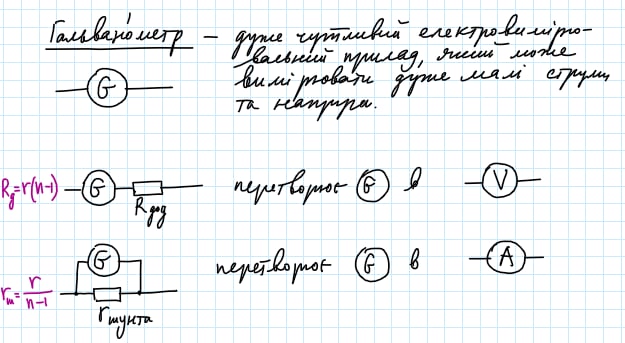 Гальванометр – дуже чутливий електровимірю-
вальний прилад, який може
вимірювати дуже малі струми
та напруги.
G
R_g=r(n-1) G R_дод перетворює G в V
G
r_ш=r/(n-1) r_шунта перетворює G в A